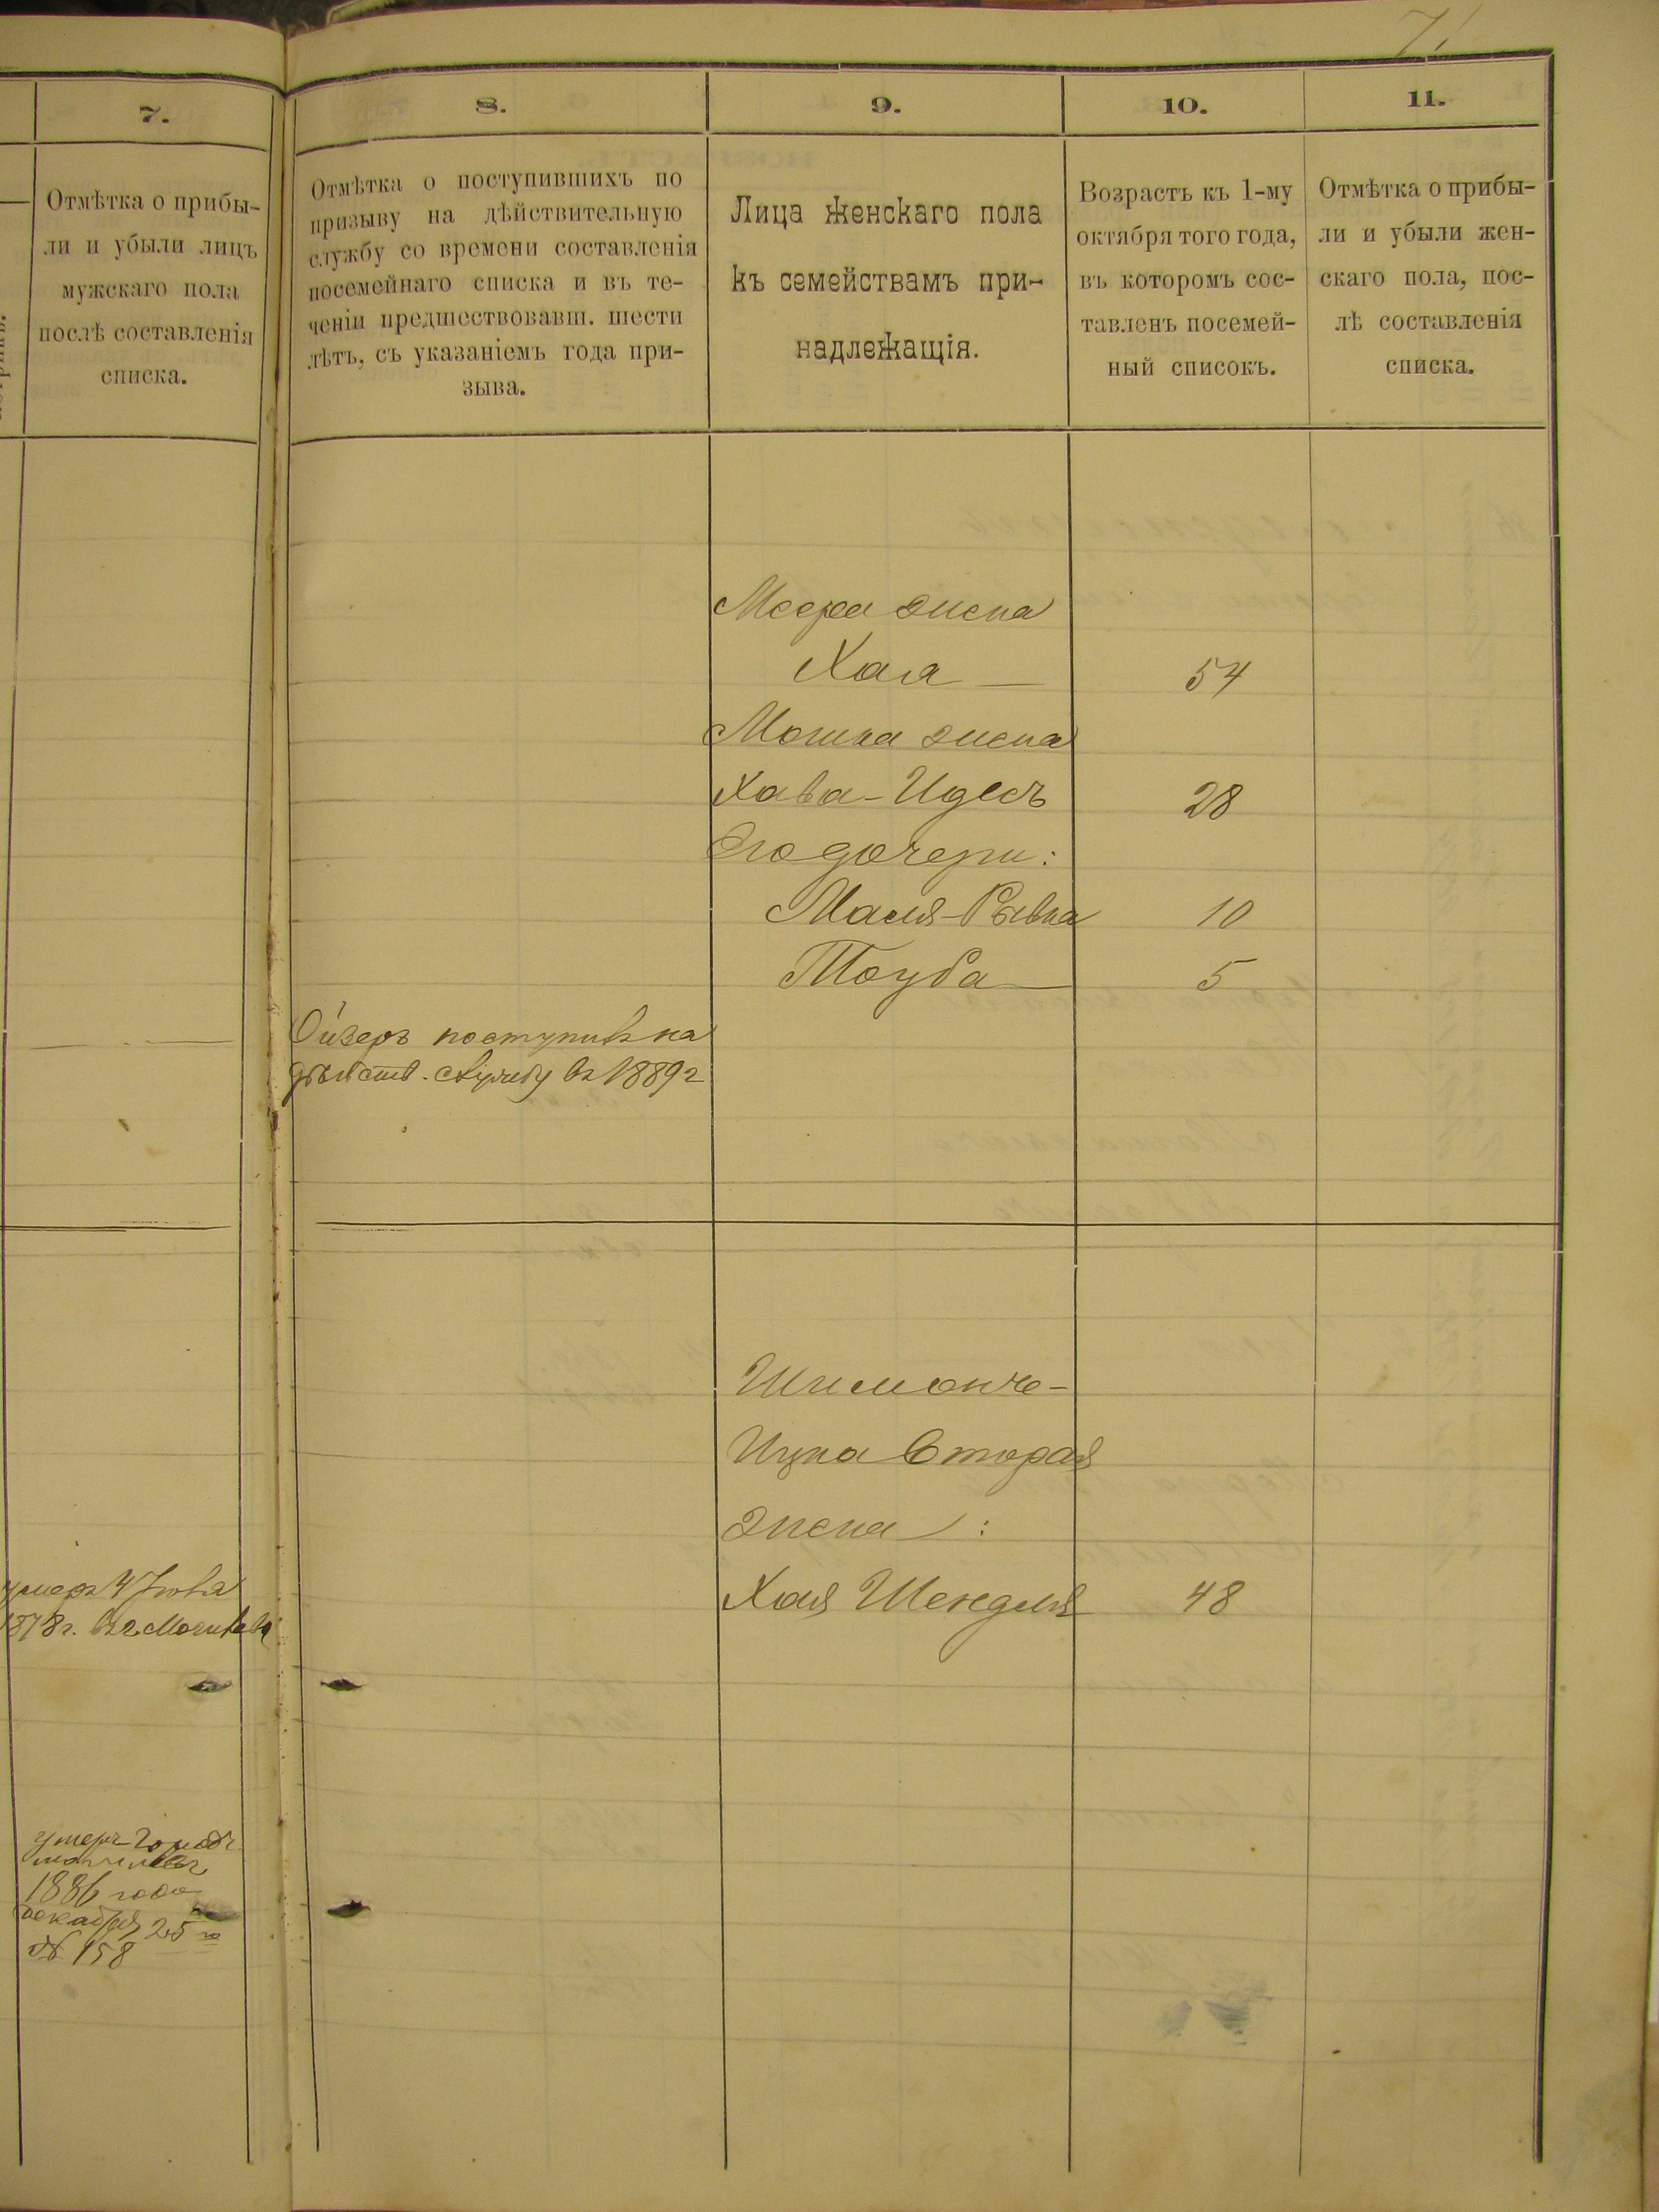 71
7.
8.
9.
10.
11.
Отмѣтка о прибы-
ли и убыли лицъ
мужскаго пола
послѣ составленія
списка.
Отмѣтка о поступившихъ по
призыву на дѣйствительную
службу со времени составленія
посемейнаго списка и въ те-
ченіи предшествовавш. шести
лѣтъ, съ указаніемъ года при-
зыва.
Лица женскаго пола
къ семействамъ при-
надлежащія.
Возрастъ къ 1-му
октября того года,
въ которомъ сос-
тавленъ посемей-
ный списокъ.
Отмѣтка о прибы-
ли и убыли жен-
скаго пола, пос-
лѣ составленія
списка.
Меера жена
Хая — 54
Мошка жена
Хава-Идесъ 28
Его дочери:
Маля-Рывка 10
Тоуба — 5
Ойзеръ поступилъ на
дѣйств. службу въ 1889 г
Шимонче-
Ицка вторая
жена :
Хая Шендля 48
умеръ 4
1878 г. въ г. Могилевѣ
умеръ
1886 года
декабря 25 го
№ 158